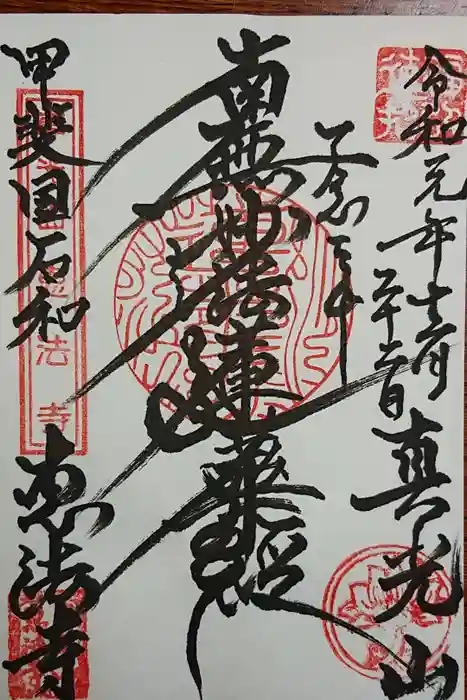 令和元年十二月
二十二日
真光山
一念三千
南無妙法蓮華経
甲斐国石和
恵法寺
法寺